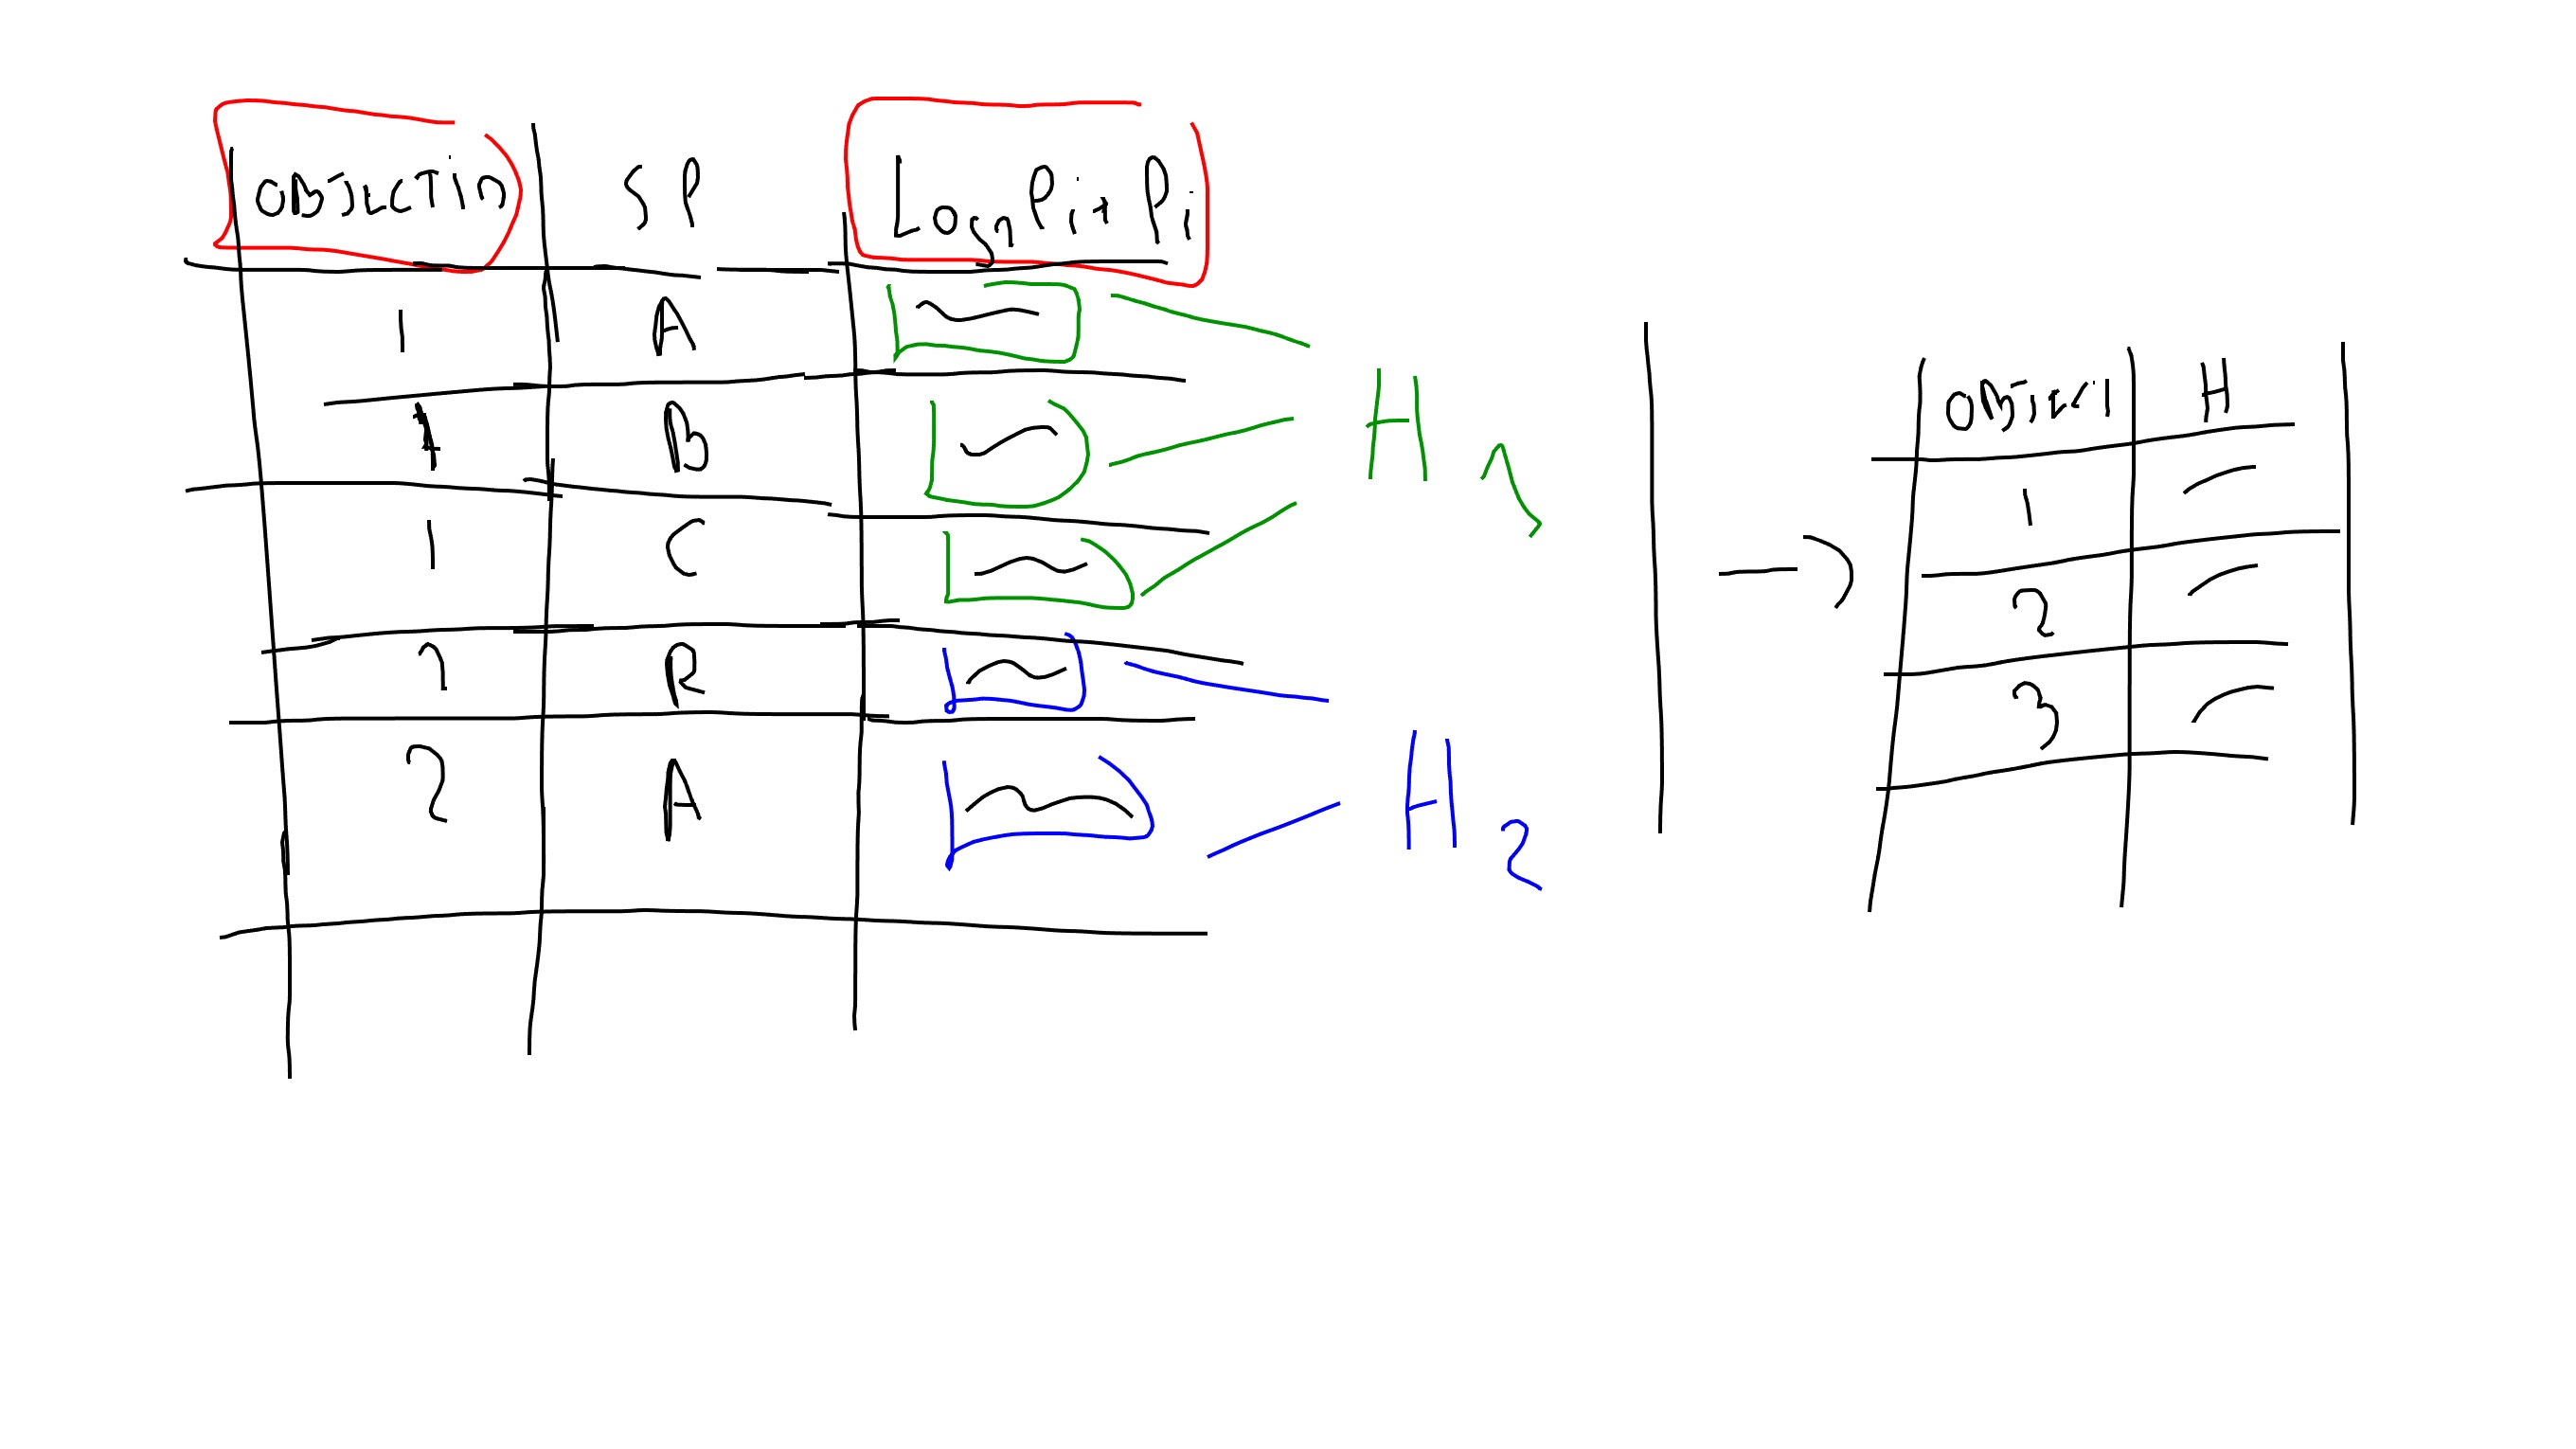 OBJECTIO SP LognPi+Pi
1 A
1 B
1 C
2 R
2 A
H 1
H 2
OBJECT H
1
2
3